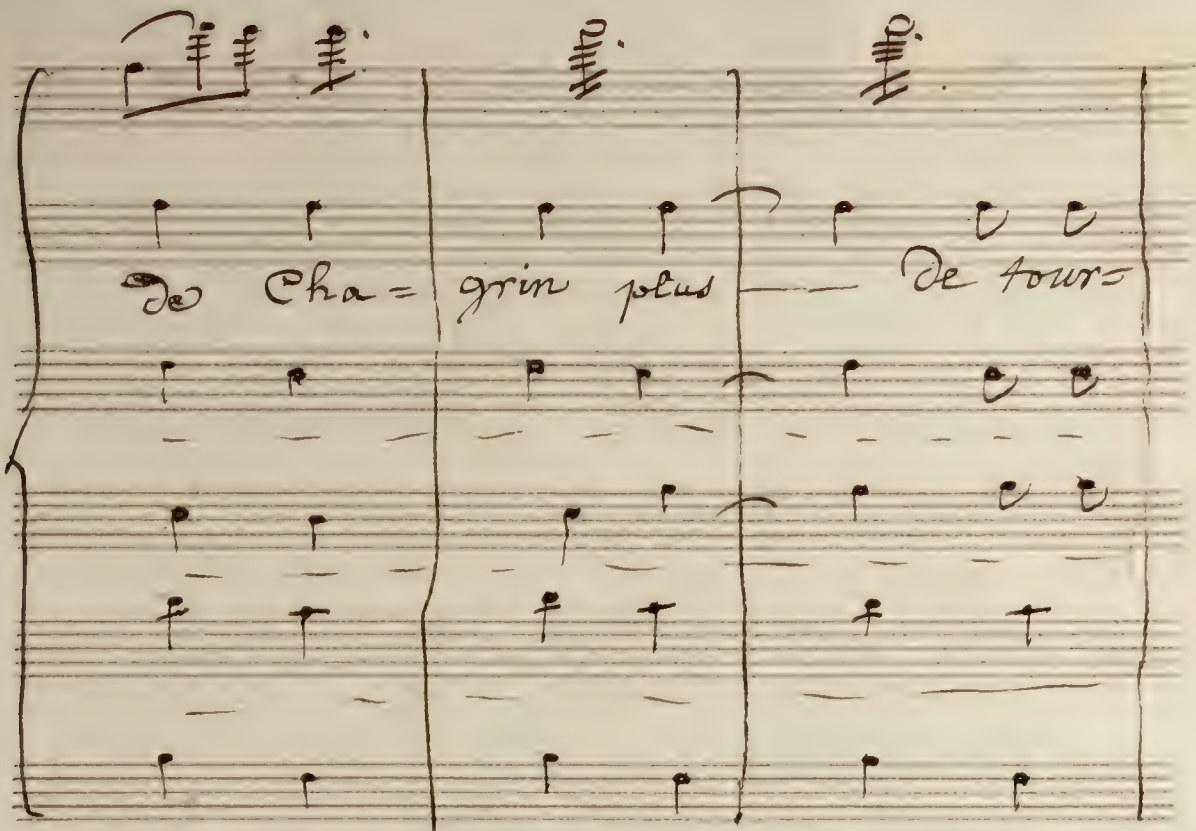 de Cha= grin plus — de tour=